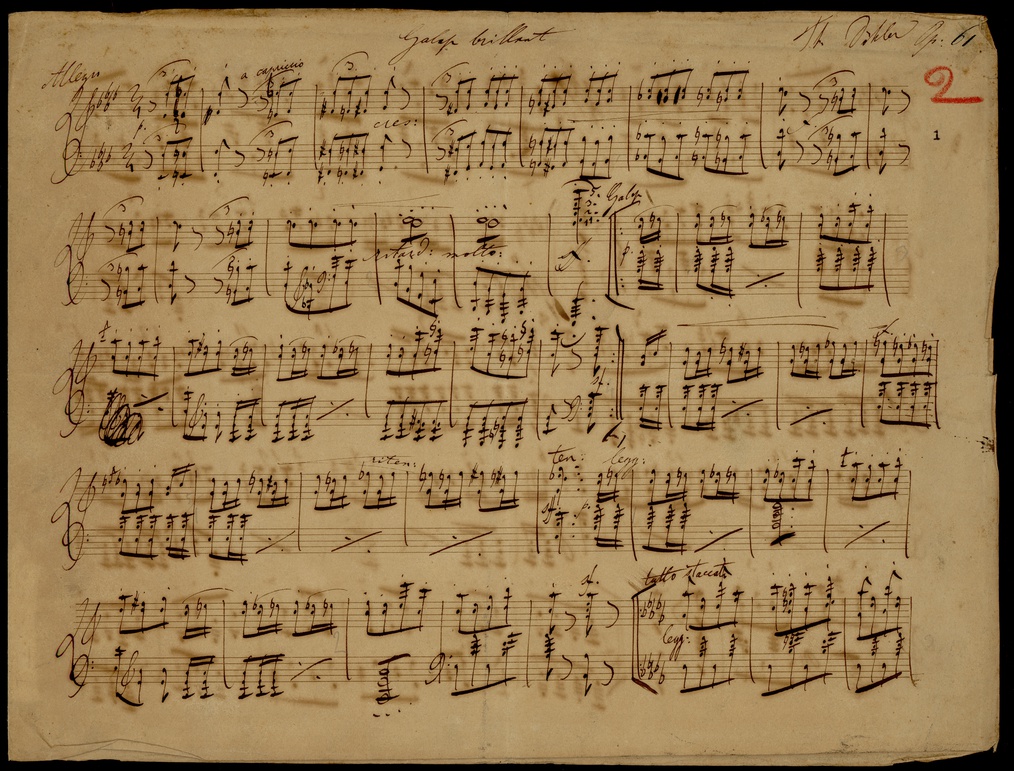 Galop brillant
Th. Döhler Op: 61.
Allegro
a capriccio
2
cres:
1
Galop
ritard: molto:
riten:
ten: legg:
tutto staccato
legg: